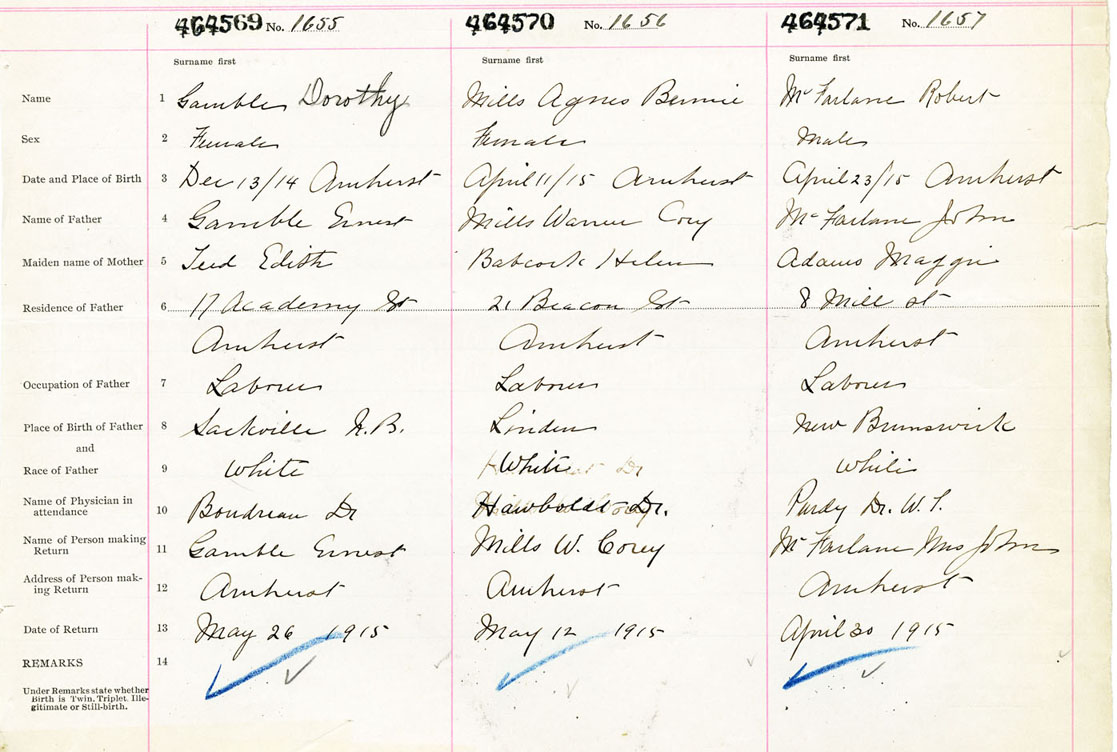 464569 No. 1655 464570 No. 1656 464571 No. 1657
Surname first Surname first Surname first
Name 1 Gamble Dorothy Mills Agnes Bernice McFarlane Robert
Sex 2 Female Female Male
Date and Place of Birth 3 Dec 13/14 Amherst April 11/15 Amherst April 23/15 Amherst
Name of Father 4 Gamble Ernest Mills Warren Cory McFarlane John
Maiden name of Mother 5 Teed Edith Babcock Helen Adams Maggie
Residence of Father 6 17 Academy St 21 Beacon St 8 Mill st
Amherst Amherst Amherst
Occupation of Father 7 Laborer Laborer Laborer
Place of Birth of Father 8 Sackville N.B. Linden New Brunswick
and
Race of Father 9 White White White
Name of Physician in
attendance 10 Boudreau Dr Hawboldt Dr. Purdy Dr. W. T.
Name of Person making
Return 11 Gamble Ernest Mills W. Corey McFarlane Mrs John
Address of Person mak-
ing Return 12 Amherst Amherst Amherst
Date of Return 13 May 26 1915 May 12 1915 April 30 1915
REMARKS 14
Under Remarks state whether
Birth is Twin, Triplet, Ille-
gitimate or Still-birth.